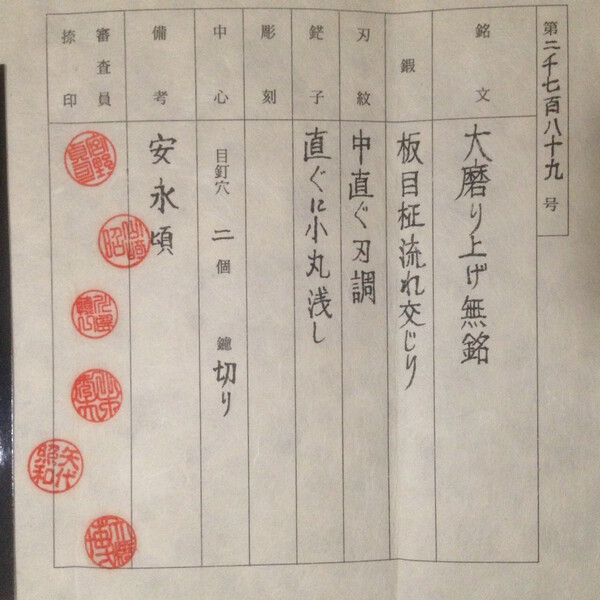 第二千七百八十九号
銘文 大磨り上げ無銘
鍜 板目柾流れ交じり
刃紋 中直ぐ刃調
鋩子 直ぐに小丸浅し
彫刻
中心 目釘穴 二個 鑢 切り
備考 安永頃
審査員捺印
矢代照和